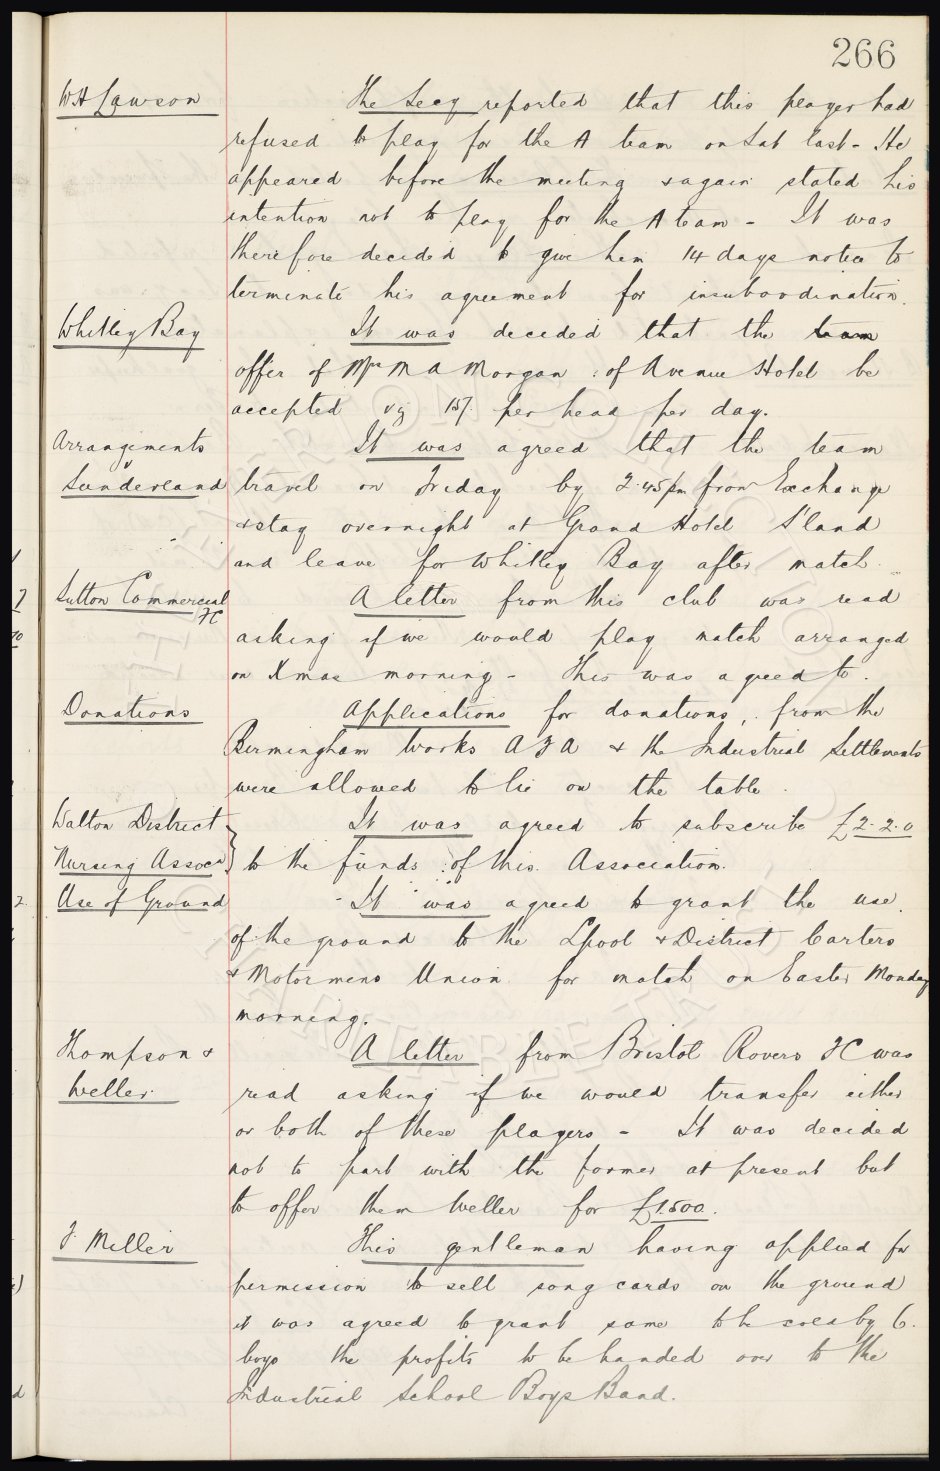 266
W H Lawson
The Secy reported that this player had
refused to play for the A team on Sat last - He
appeared before the meeting & again stated his
intention not to play for the A team - It was
therefore decided to give him 14 days notice to
terminate his agreement for insubordination.
Whitley Bay
It was decided that the team
offer of Mrs M A Morgan of Avenue Hotel be
accepted viz 15/. per head per day.
Arrangements
Sunderland
It was agreed that the team
travel on Friday by 2.45 pm from Exchange
& stay overnight at Grand Hotel S'land
and leave for Whitley Bay after match.
Sutton Commercial
FC
A letter from this club was read
asking if we would play match arranged
on Xmas morning - This was agreed to.
Donations
Applications for donations, from the
Birmingham Works A F A & the Industrial Settlements
were allowed to lie on the table.
Walton District
Nursing Assocn
It was agreed to subscribe £2.2.0
to the funds of this Association.
Use of Ground
It was agreed to grant the use
of the ground to the Lpool & District Carters
& Motormens Union for match on Easter Monday
morning.
Thompson &
Weller.
A letter from Bristol Rovers FC was
read asking if we would transfer either
or both of these players - It was decided
not to part with the former at present but
to offer them Weller for £1500.
F. Miller
This gentleman having applied for
permission to sell song cards on the ground
it was agreed to grant same to be sold by 6.
boys the profits to be handed over to the
Industrial School Boys Band.